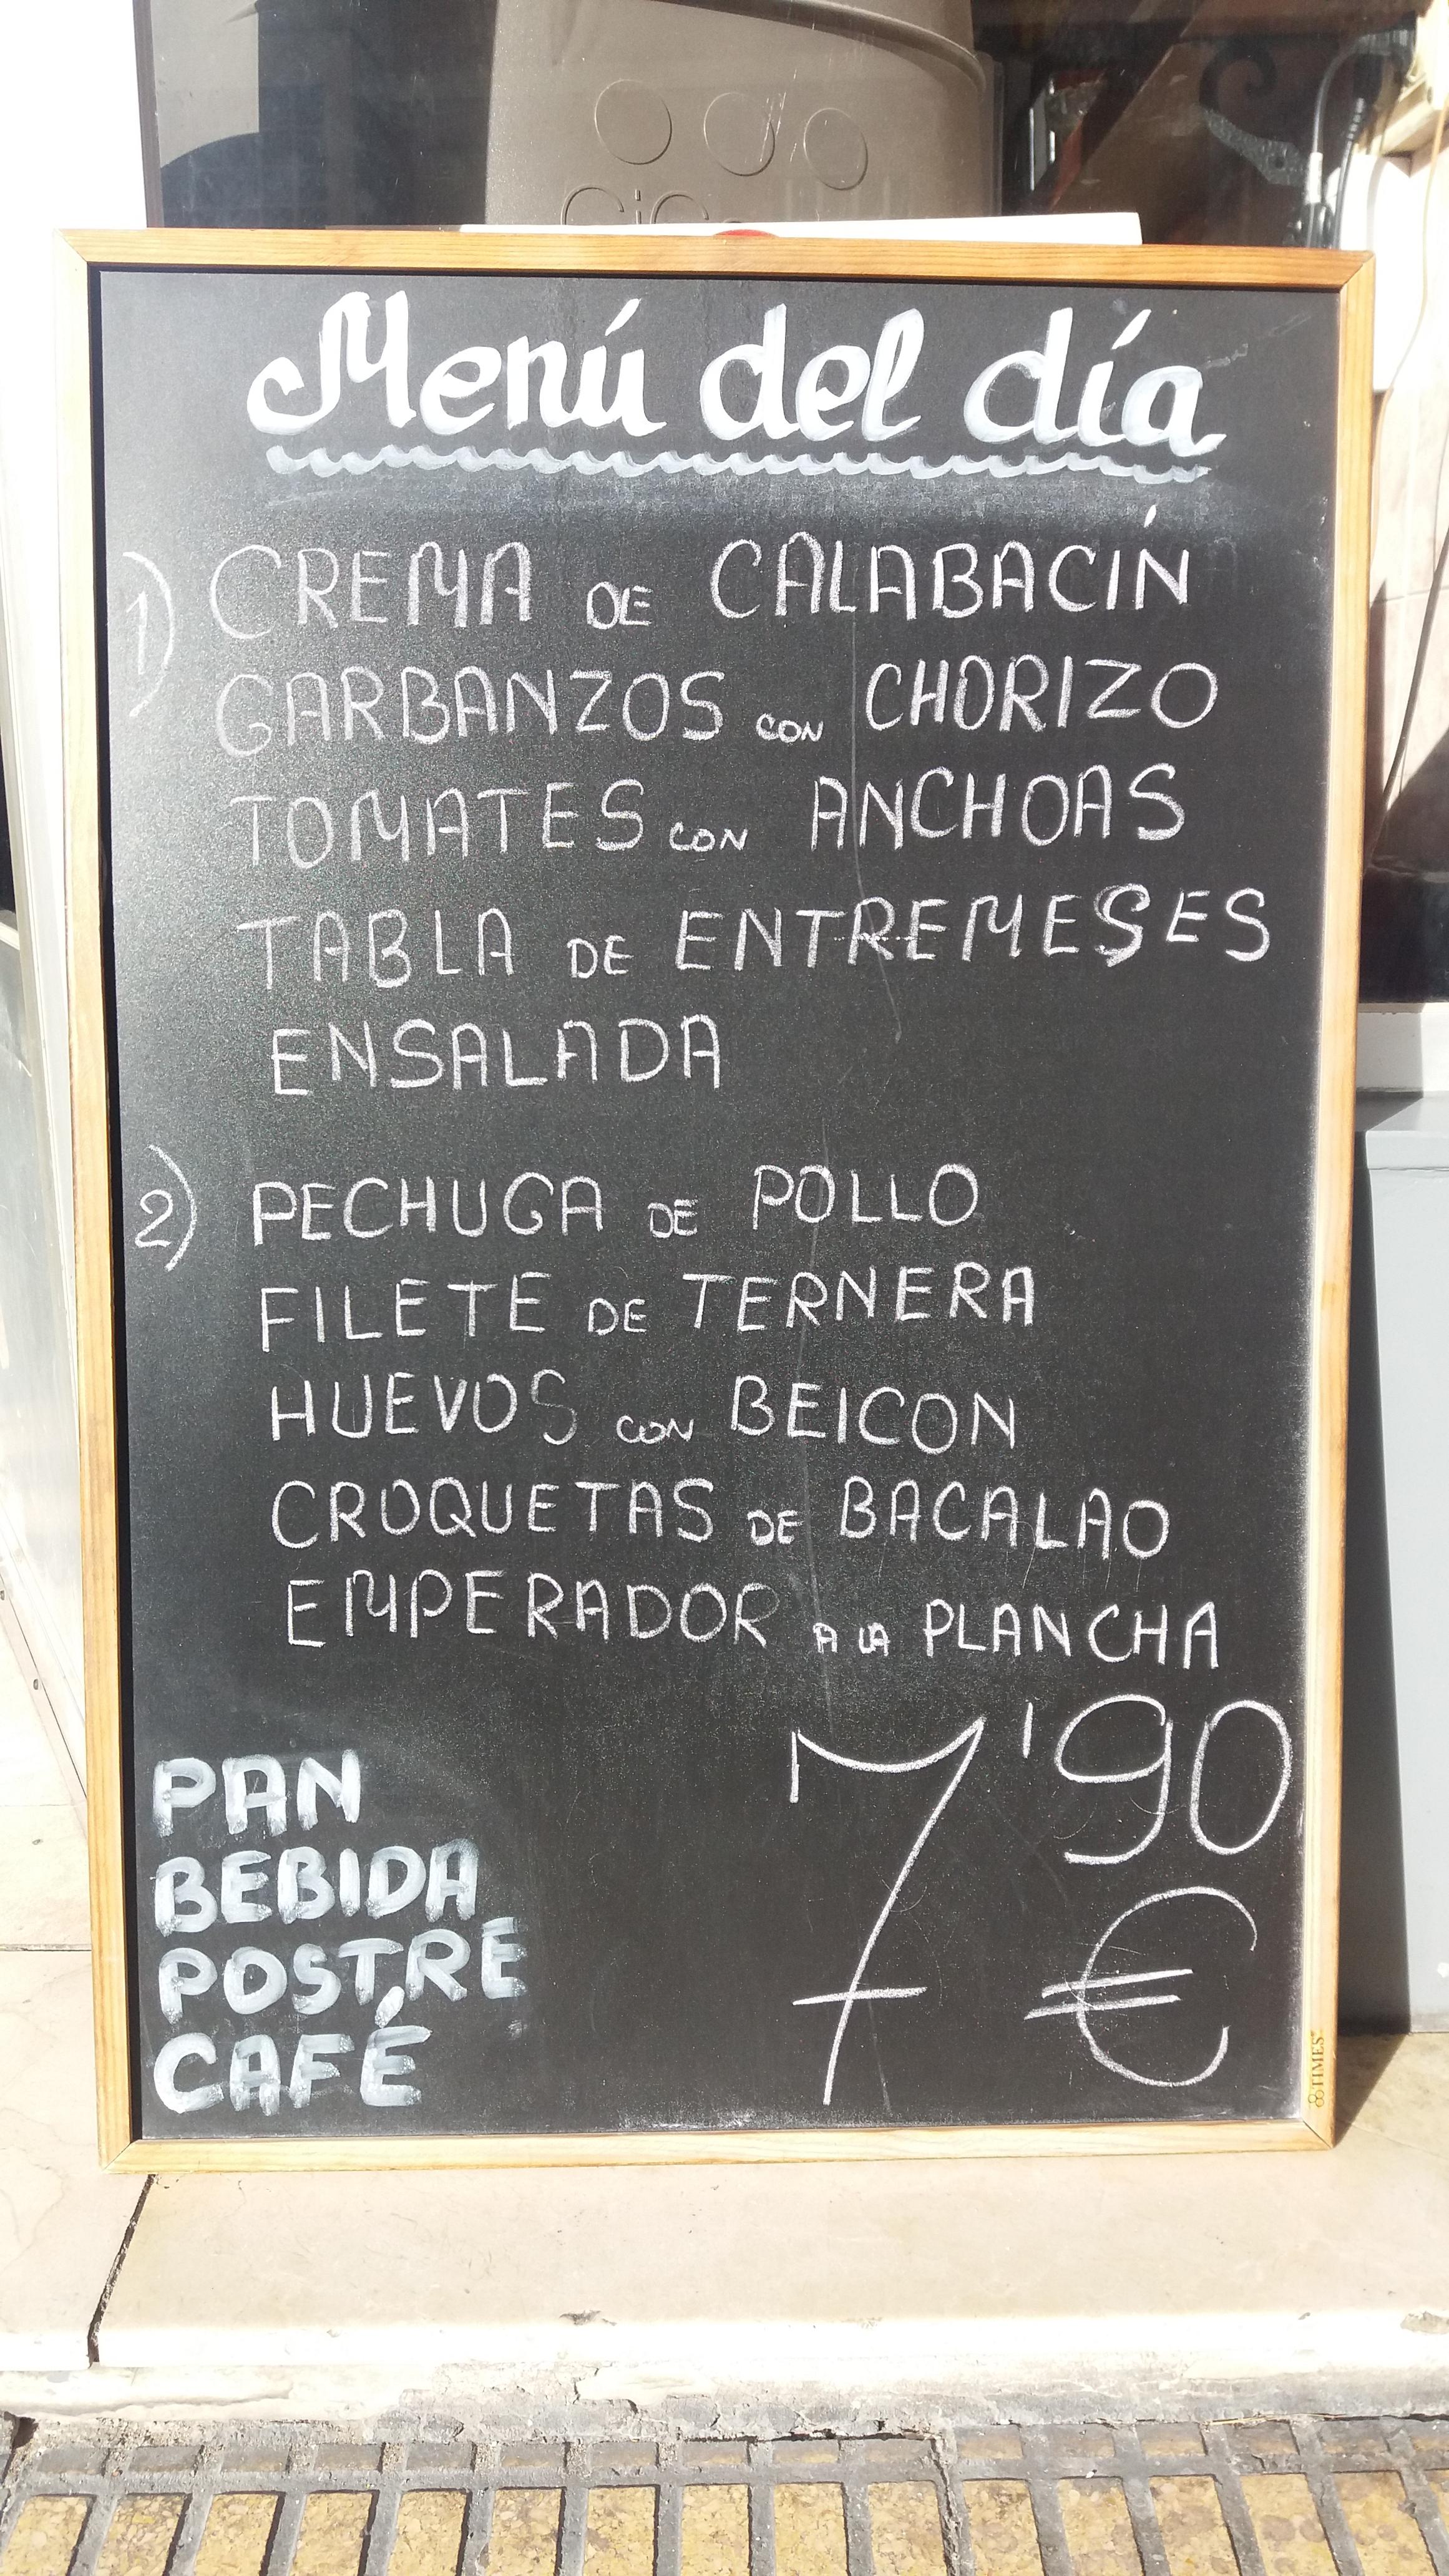 Menú del día
1) CREMA DE CALABACÍN
GARBANZOS CON CHORIZO
TOMATES CON ANCHOAS
TABLA DE ENTREMESES
ENSALADA
2) PECHUGA DE POLLO
FILETE DE TERNERA
HUEVOS CON BEICON
CROQUETAS DE BACALAO
EMPERADOR A LA PLANCHA
7'90
€
PAN
BEBIDA
POSTRE
CAFÉ
TIMES